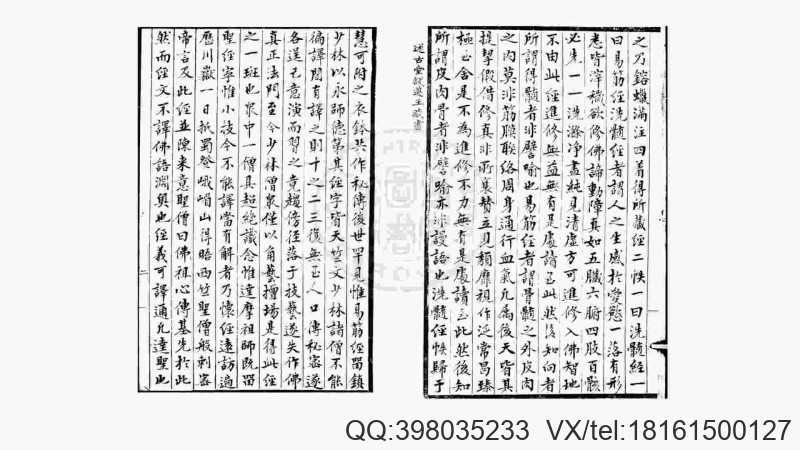 之乃鎔蠟滿注四着得所藏經二帙一曰洗髓經一
曰易筋經洗髓經者謂人之生感於愛慾一落有形
悉皆滓穢欲修佛諦動障真如五臟六腑四肢百骸
必先一一洗滌淨盡純見清虛方可進修入佛智地
不由此經進修無益無有是處讀至此然後知向者
所謂得髓者非譬喻也易筋經者謂骨髓之外皮肉
之内莫非筋聯絡周身通行血氣凢屬後天皆其
提挈假借修真非所贊立見頽靡祖作泛常曷臻
極至舍是不為進修不力無有是處讀至此然後知
所謂皮肉骨者非譬喻亦非謾語也洗髓經帙歸于
述古堂
慧可附之衣鉢共作秘傳後世罕見惟易筋經留鎮
少林以永師德第其經字皆天竺文少林諸僧不能
徧譯間有譯之則十之二三復無至人口傳秘密遂
各逞已意演而習之竟趨傍徑落于技藝遂失作佛
真正法門至今少林僧衆僅以角藝擅場是得此經
之一班也衆中一僧具超絶識念惟達摩祖師既留
聖經寧惟小技今不能譯當有解者乃懷經遠訪遍
歷川嶽一日抵蜀登峨嵋山得晤西竺聖僧般剌密
帝言及此經並陳來意聖僧曰佛祖心傳基先於此
然而經文不譯佛語淵奥也經義可譯通凢達聖也
二
QQ:398035233 VX/tel:18161500127